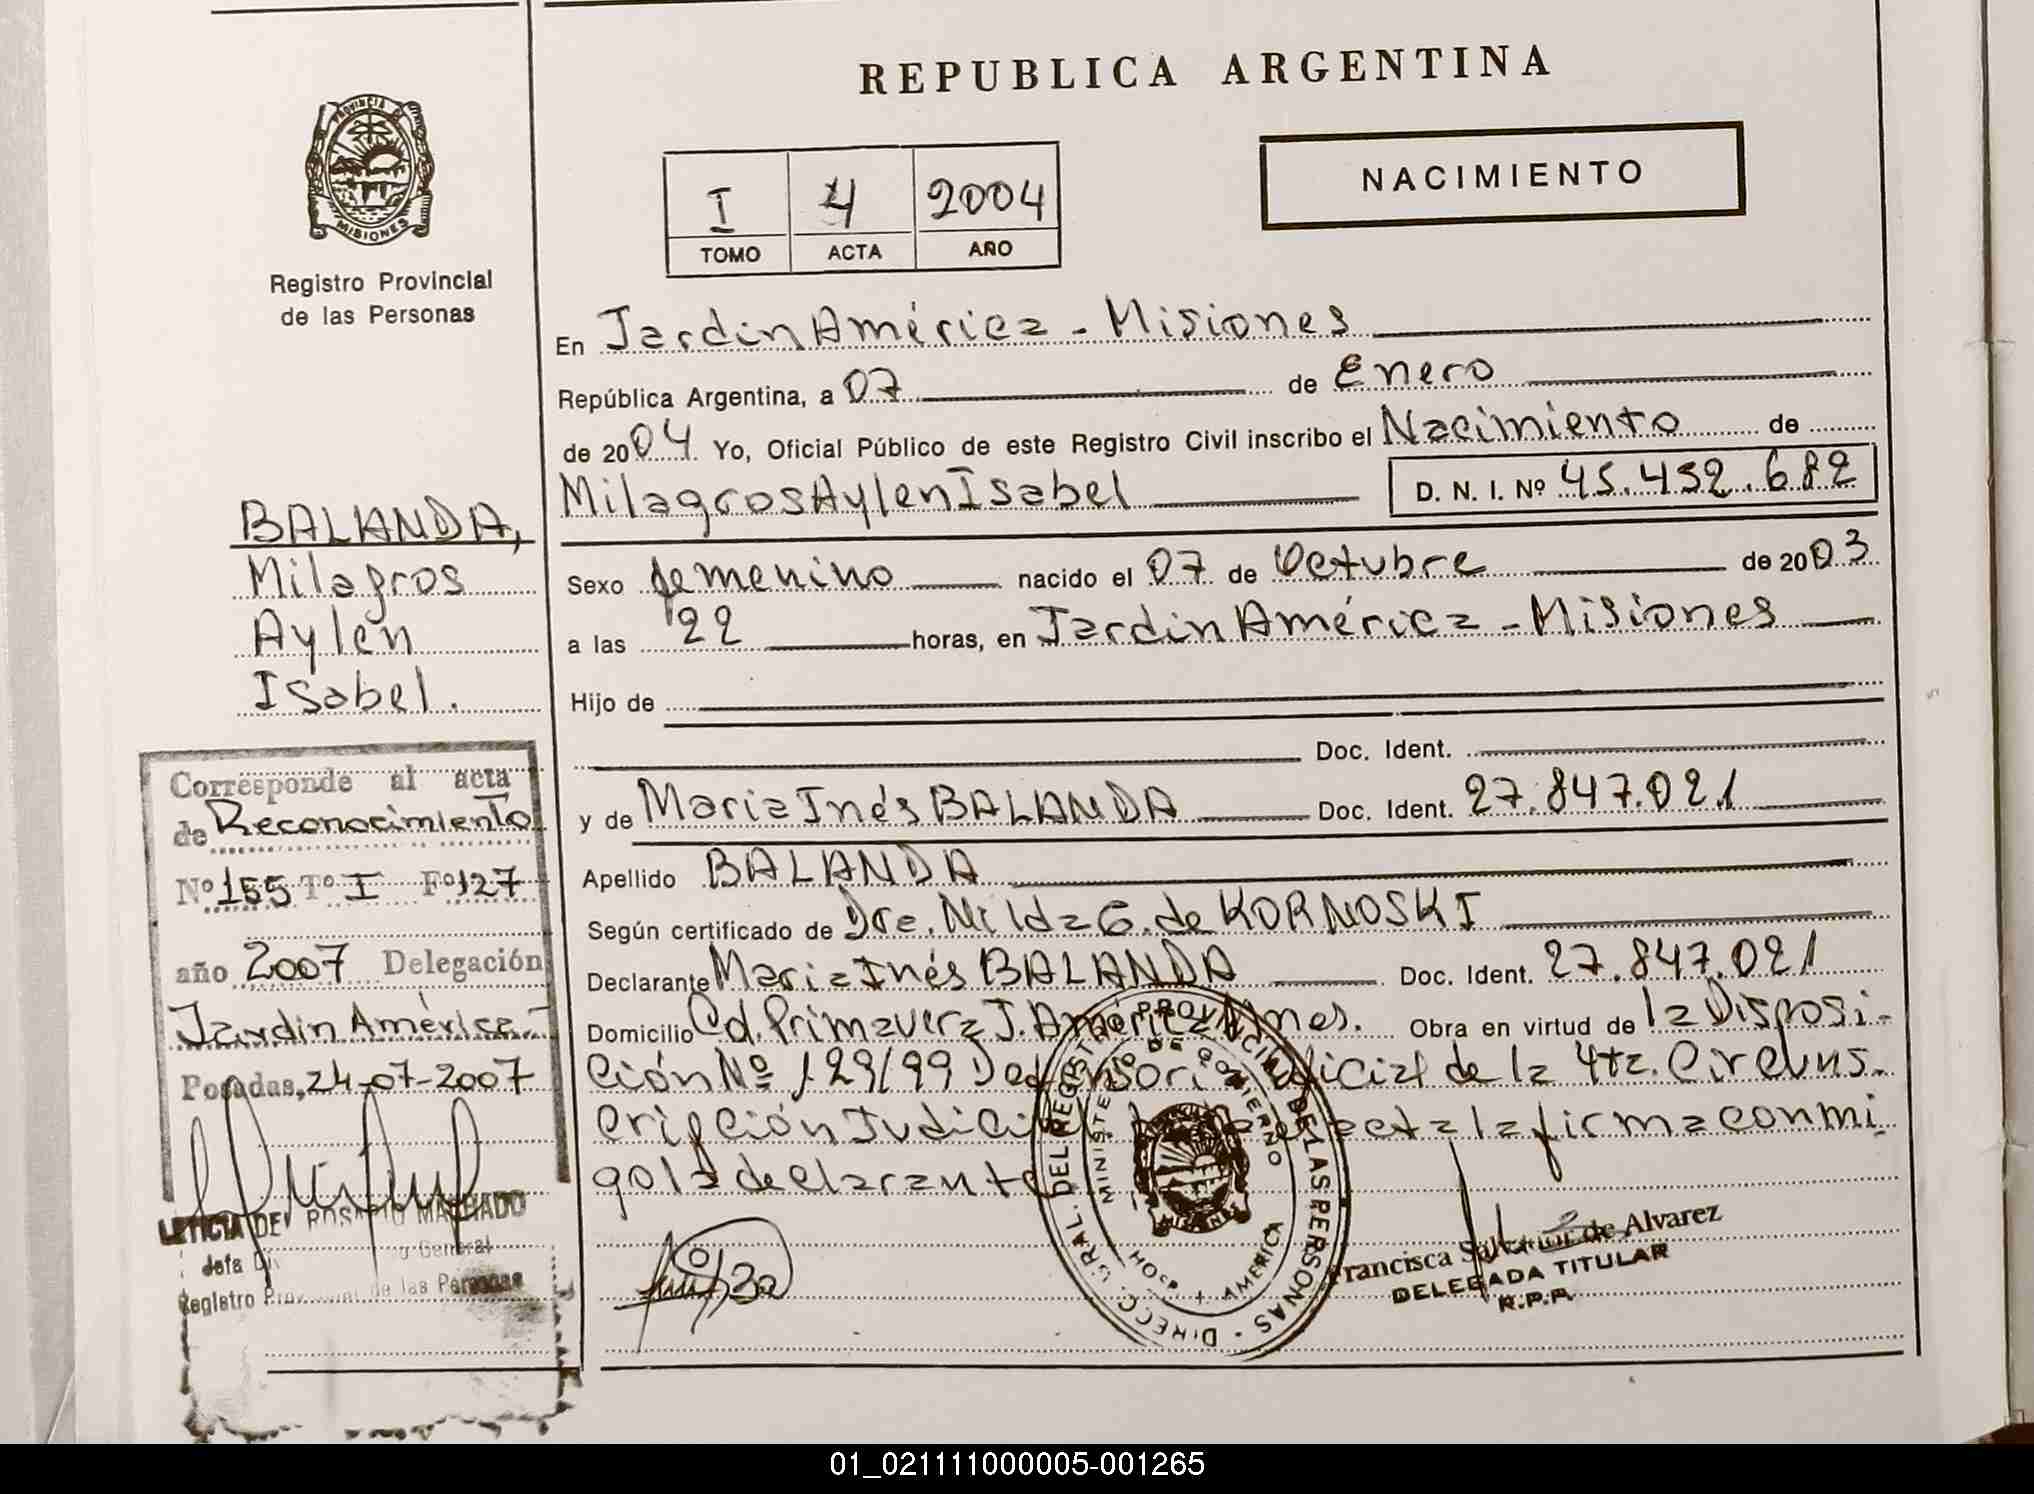 REPUBLICA ARGENTINA
PROVINCIA DE
MISIONES
Registro Provincial
de las Personas
NACIMIENTO
I 4 2004
TOMO ACTA AÑO
En Jardín América - Misiones
República Argentina, a 07 de Enero
de 2004 Yo, Oficial Público de este Registro Civil inscribo el Nacimiento de
Milagros Aylen Isabel D. N. I. Nº 45.452.682
Sexo femenino nacido el 07 de Octubre de 2003
a las 22 horas, en Jardín América - Misiones
Hijo de
Doc. Ident.
y de María Inés BALANDA Doc. Ident. 27.847.021
Apellido BALANDA
Según certificado de Dra. Nilda G. de KORNOSKI
Declarante María Inés BALANDA Doc. Ident. 27.847.021
Domicilio Cd. Primavera J. América Mnes. Obra en virtud de la Disposi-
ción Nº 129/99 Defensoría Oficial de la 4ta. Circuns-
cripción Judicial la firma conmi-
go la declarante
BALANDA,
Milagros
Aylen
Isabel.
Corresponde al acta
de Reconocimiento
Nº 155 Tº I Fº 127
año 2007 Delegación
Jardín América
Posadas, 24-07-2007
LETICIA DEL ROSARIO MACHADO
Jefa General
Registro Provincial de las Personas
DIRECC. GRAL. DEL REGISTRO PROVINCIAL DE LAS PERSONAS
MINISTERIO DE GOBIERNO
AMERICA
MISIONES
Francisca de Alvarez
DELEGADA TITULAR
R.P.P.
01_021111000005-001265